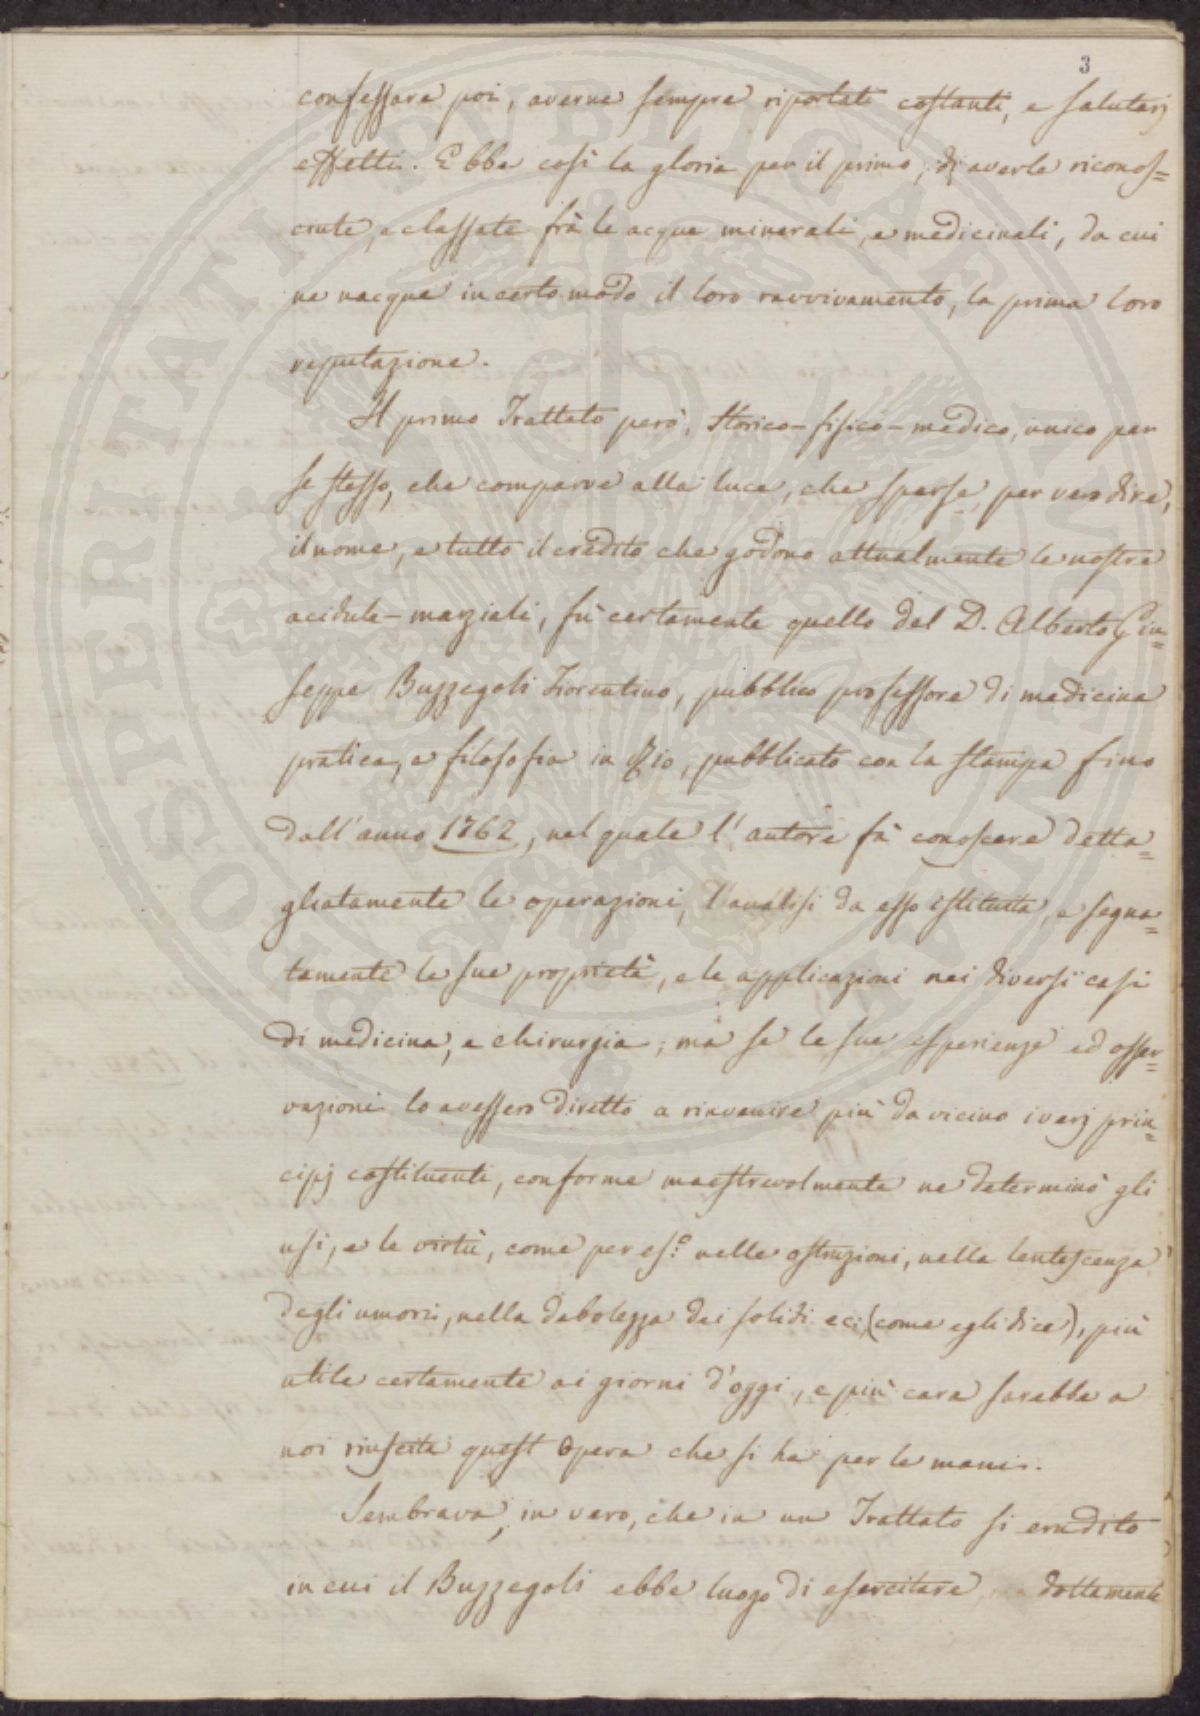 3
confessare poi, averne sempre riportati costanti, e salutarj
effetti. Ebbe così la gloria per il primo, di averle riconos=
ciute, e classate frà le acque minerali, e medicinali, da cui
ne nacque in certo modo il loro ravvivamento, la prima loro
reputazione.
Il primo Trattato però, Storico-fisico-medico, unico per
se stesso, che comparve alla luce, che sparse, per vero dire,
il nome, e tutto il credito che godono attualmente le nostre
acidule-marziali, fù certamente quello del D. Alberto Giu=
seppe Buzzegoli Fiorentino, pubblico professore di medicina
pratica, e filosofia in Rio, pubblicato con la stampa fino
dall'anno 1762, nel quale l'autore fà conoscere detta=
gliatamente le operazioni, l'analisi da esso istituita, e segna=
tamente le sue proprietà, e le applicazioni nei diversi casi
di medicina, e chirurgia; mà se le sue esperienze ed osser=
vazioni lo avessero diretto a rinvenire più da vicino i verj prin=
cipj costituenti, conforme maestrevolmente ne determinò gli
usi, e le virtù, come per es:º nelle ostruzioni, nella lentescenza
degli umori, nella debolezza dei solidi ec: (come egli dice), più
utile certamente ai giorni d'oggi, e più cara sarebbe a
noi riuscita quest'Opera che si ha per le mani.
Sembrava, in vero, che in un Trattato sì erudito
in cui il Buzzegoli ebbe luogo di esercitare dottamente
PROSPERITATI PUBLICAE AUGENDAE